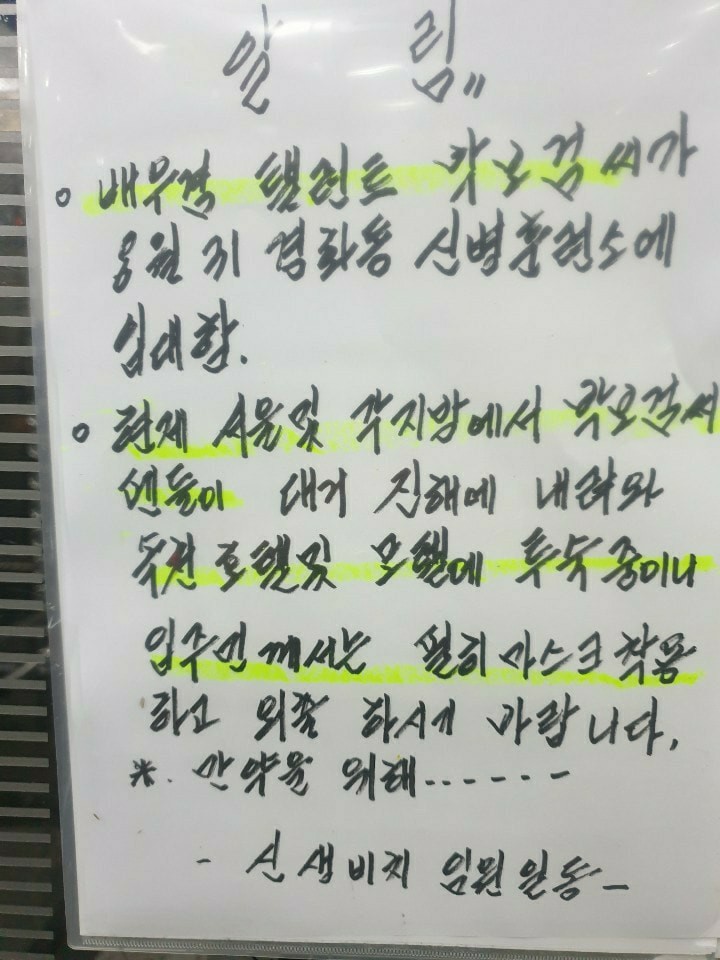 알 림"
○ 배우겸 탤런트 박보검씨가
31일 경화동 신병훈련소에
입대함.
○ 현제 서울및 각지방에서 박보검씨
팬들이 대거 진해에 내려와
숙천호텔및 모텔에 투숙중이니
입주민께서는 필히 마스크착용
하고 외출 하시기 바랍니다.
※. 만약을 위해......
- 신생비치 임원일동 -